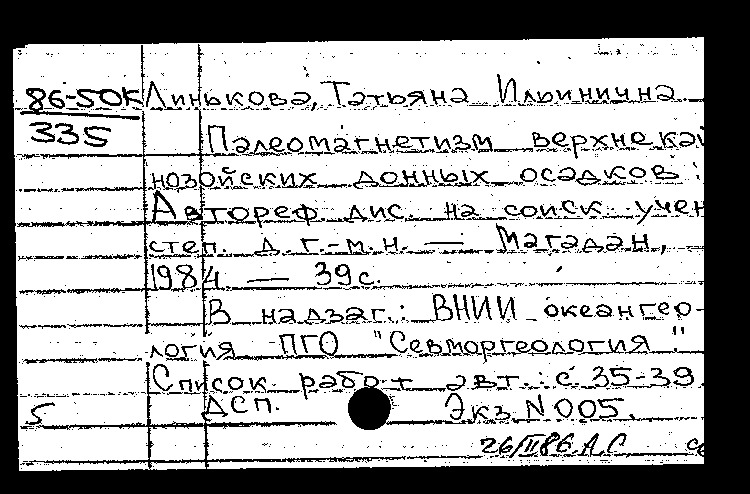 86-50К Линькова, Татьяна Ильинична
335 Палеомагнетизм верхнекай
нозойских донных осадков :
Автореф дис. на соиск учен
степ. д.г.-м.н. — Магадан,
1984 — 39с.
В надзаг.: ВНИИ океангео-
логия ПГО "Севморгеология".
Список работ авт.: с 35-39.
5 ДСП. Экз. N 005.
26/II86 А.С.